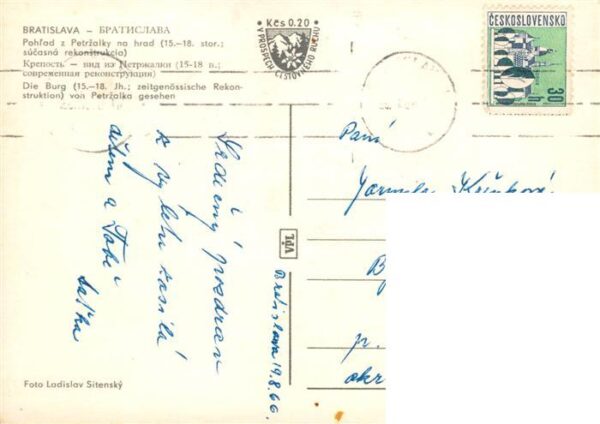 BRATISLAVA – БРАТИСЛАВА
Pohľad z Petržalky na hrad (15.–18. stor.;
súčasná rekonštrukcia)
Крепость – вид из Петржалки (15-18 в.;
современная реконструкция)
Die Burg (15.–18. Jh.; zeitgenössische Rekon-
struktion) von Petržalka gesehen
Kčs 0.20
V PROSPECH CESTOVNÉHO RUCHU
ČESKOSLOVENSKO
30 h
Srdečný pozdrav
k výletu zasílá
dětem a Tobě
Paní
Jarmila
B
p.
okr
VPL
Bratislava 19.8.66.
Foto Ladislav Sitenský